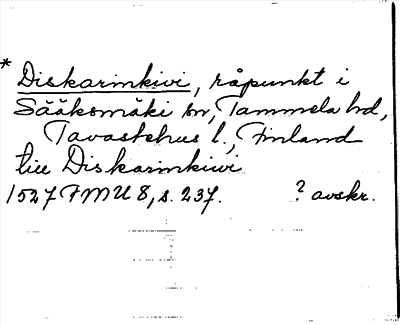 * Diskarinkivi, råpunkt i
Sääksmäki sn, Tammela hd,
Tavastehus l., Finland
till Diskarinkiwi
1527 FMU 8, s. 237. ? avskr.